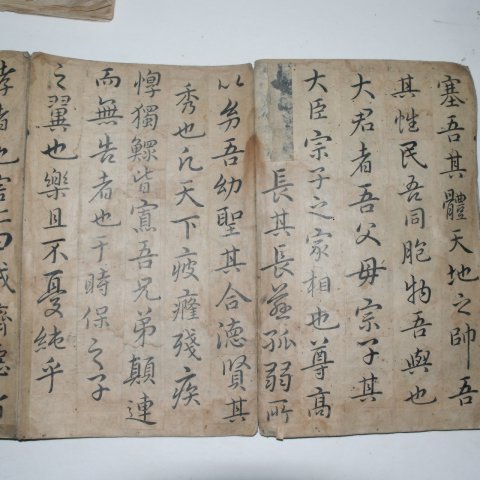 塞吾其體天地之帥吾
其性民吾同胞物吾與也
大君者吾父母宗子其
大臣宗子之家相也尊高
長其長慈孤弱所
以幼吾幼聖其合德賢其
秀也凡天下疲癃殘疾
惸獨鰥皆寡吾兄弟顛連
而無告者也于時保之子
之翼也樂且不憂純乎
者也害仁曰賊濟惡者